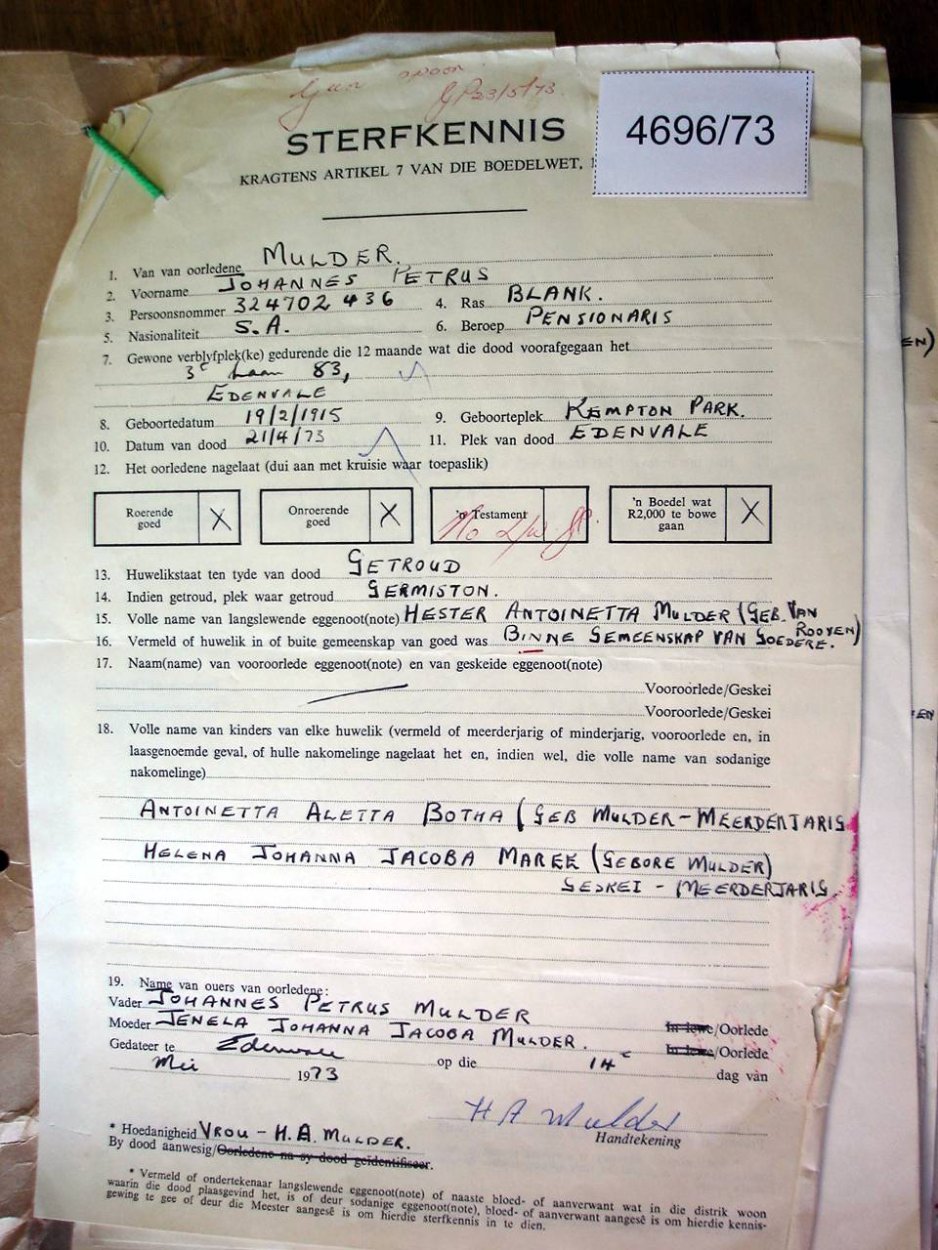 GP 23/5/73.
4696/73
STERFKENNIS
KRAGTENS ARTIKEL 7 VAN DIE BOEDELWET,
1. Van van oorledene MULDER.
2. Voorname JOHANNES PETRUS
3. Persoonsnommer 324702 436 4. Ras BLANK.
5. Nasionaliteit S.A. 6. Beroep PENSIONARIS
7. Gewone verblyfplek(ke) gedurende die 12 maande wat die dood voorafgegaan het
3e Laan 83,
EDENVALE
8. Geboortedatum 19/2/1915 9. Geboorteplek KEMPTON PARK.
10. Datum van dood 21/4/73 11. Plek van dood EDENVALE
12. Het oorledene nagelaat (dui aan met kruisie waar toepaslik)
Roerende goed X Onroerende goed X 'n Testament No 'n Boedel wat R2,000 te bowe gaan X
13. Huwelikstaat ten tyde van dood GETROUD
14. Indien getroud, plek waar getroud GERMISTON.
15. Volle name van langslewende eggenoot(note) HESTER ANTOINETTA MULDER (GEB. VAN ROOYEN)
16. Vermeld of huwelik in of buite gemeenskap van goed was BINNE GEMEENSKAP VAN GOEDERE.
17. Naam(name) van vooroorlede eggenoot(note) en van geskeide eggenoot(note)
Vooroorlede/Geskei
Vooroorlede/Geskei
18. Volle name van kinders van elke huwelik (vermeld of meerderjarig of minderjarig, vooroorlede en, in
laasgenoemde geval, of hulle nakomelinge nagelaat het en, indien wel, die volle name van sodanige
nakomelinge)
ANTOINETTA ALETTA BOTHA (GEB MULDER - MEERDERJARIG
HELENA JOHANNA JACOBA MAREE (GEBORE MULDER)
GESKEI - MEERDERJARIG.
19. Name van ouers van oorledene:
Vader JOHANNES PETRUS MULDER In lewe/Oorlede
Moeder JENELA JOHANNA JACOBA MULDER. In lewe/Oorlede
Gedateer te Edenvale op die 14e dag van
Mei 1973
H A Mulder
Handtekening
* Hoedanigheid VROU - H.A. MULDER.
By dood aanwesig/Oorledene na sy dood geïdentifiseer.
* Vermeld of ondertekenaar langslewende eggenoot(note) of naaste bloed- of aanverwant wat in die distrik woon
waarin die dood plaasgevind het, is of deur sodanige eggenoot(note), bloed- of aanverwant aangesê is om hierdie kennis-
gewing te gee of deur die Meester aangesê is om hierdie sterfkennis in te dien.
EN)
EN